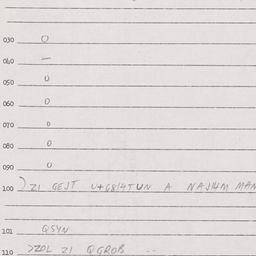 030 0
040 —
050 0
060 0
070 0
080 0
090 0
100 ) ZI GEJT U+G8/4TUN A NAJHM MAN
101 QSYN
110 >ZOL ZI QGROB --